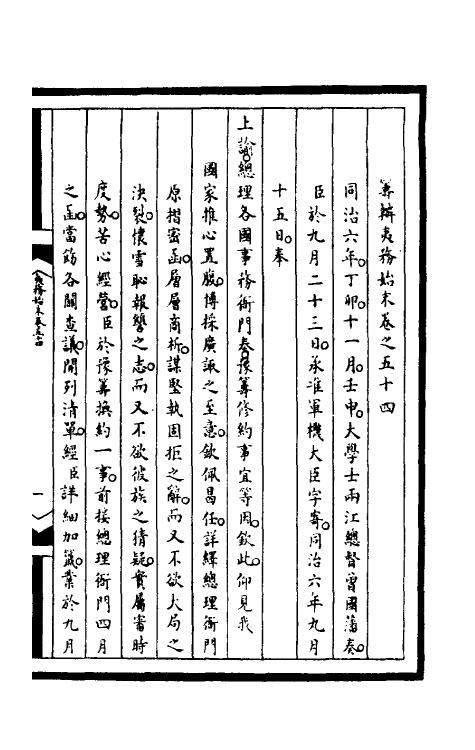 籌辦夷務始末卷之五十四
同治六年丁卯十一月壬申大學士兩江總督曾國藩奏
臣於九月二十三日承准軍機大臣字寄同治六年九月
十五日奉
上諭總理各國事務衙門奏豫籌修約事宜等因欽此仰見我
國家推心置腹博採廣諏之至意欽佩曷任詳繹總理衙門
原摺密函層層商析謀堅執固拒之辭而又不欲大局之
決裂懷雪恥報讐之志而又不欲彼族之猜疑實屬審時
度勢苦心經營臣於豫籌換約一事前接總理衙門四月
之函當飭各關查議開列清單經臣詳細加籤業於九月
夷務始末卷五十四
一